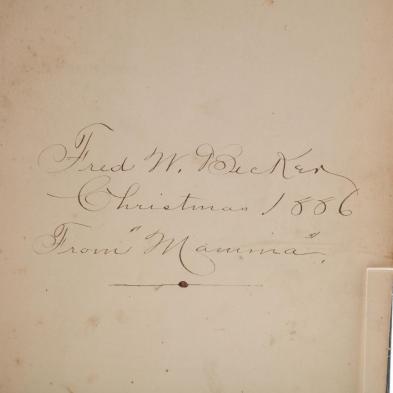 Fred W. Becker
Christmas 1886
From "Mamma".